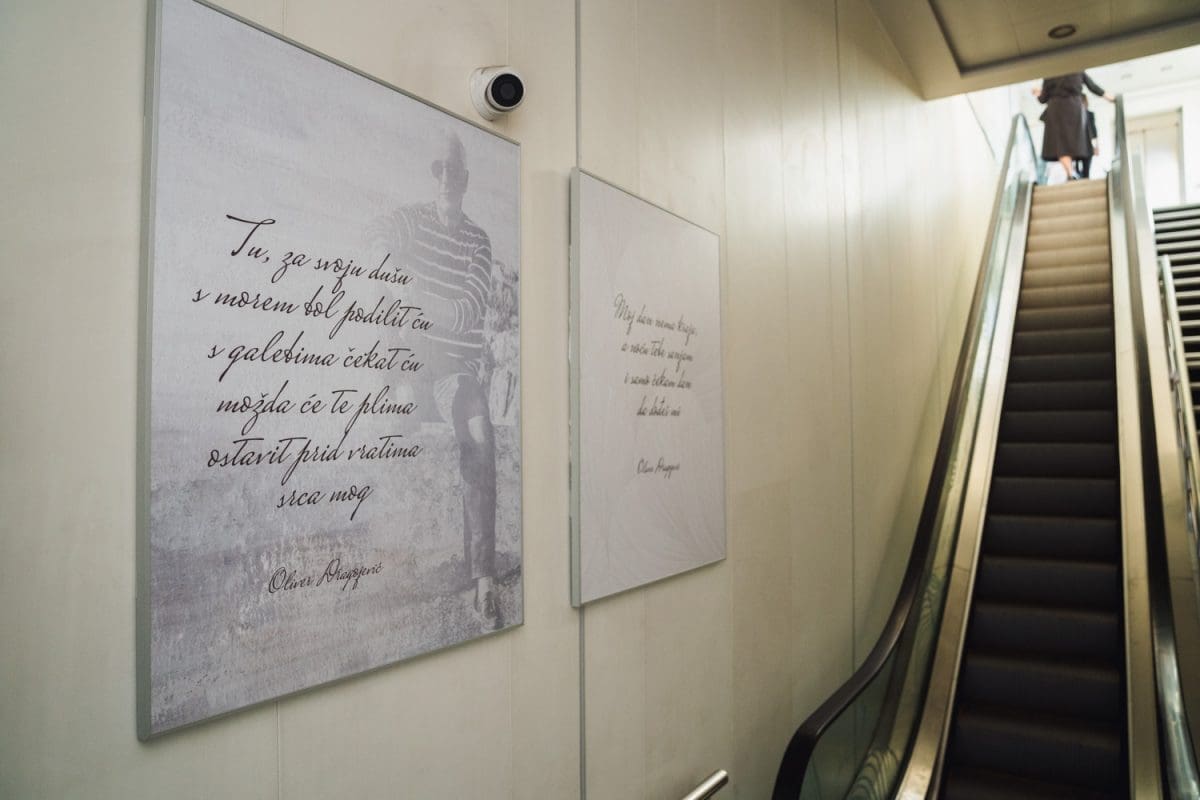 Tu, za svoju dušu
s morem bol podilit ću
s galebima čekat ću
možda će te plima
ostavit prid vratima
srca mog
Oliver Dragojević
Moj dan nema kraja,
a noću tebe sanjam
i samo čekam dan
da dođeš mi
Oliver Dragojević